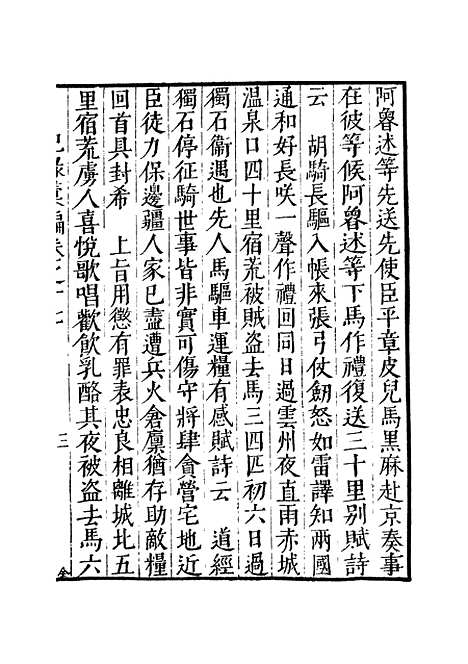 阿魯述等先送先使臣平章皮兒馬黑麻赴京奏事
在彼等候阿魯述等下馬作禮復送三十里別賦詩
云　胡騎長驅入帳來張弓仗劒怒如雷譯知兩國
通和好長咲一聲作禮回同日過雲州夜直雨赤城
溫泉口四十里宿荒被賊盗去馬三四匹初六日過
獨石衞遇也先人馬驅車運糧有感賦詩云　道經
獨石停征騎世事皆非實可傷守將肆貪營宅地近
臣徒力保邊疆人家已盡遭兵火倉廩猶存助敵糧
回首具封希　上旨用懲有罪表忠良相離城北五
里宿荒虜人喜悅歌唱歡飲乳酪其夜被盗去馬六
卷之十七
三